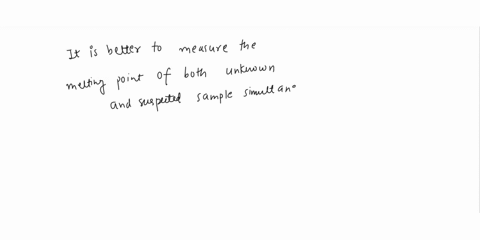 It is better to measure the
melting point of both unknown
and suspected sample simultane